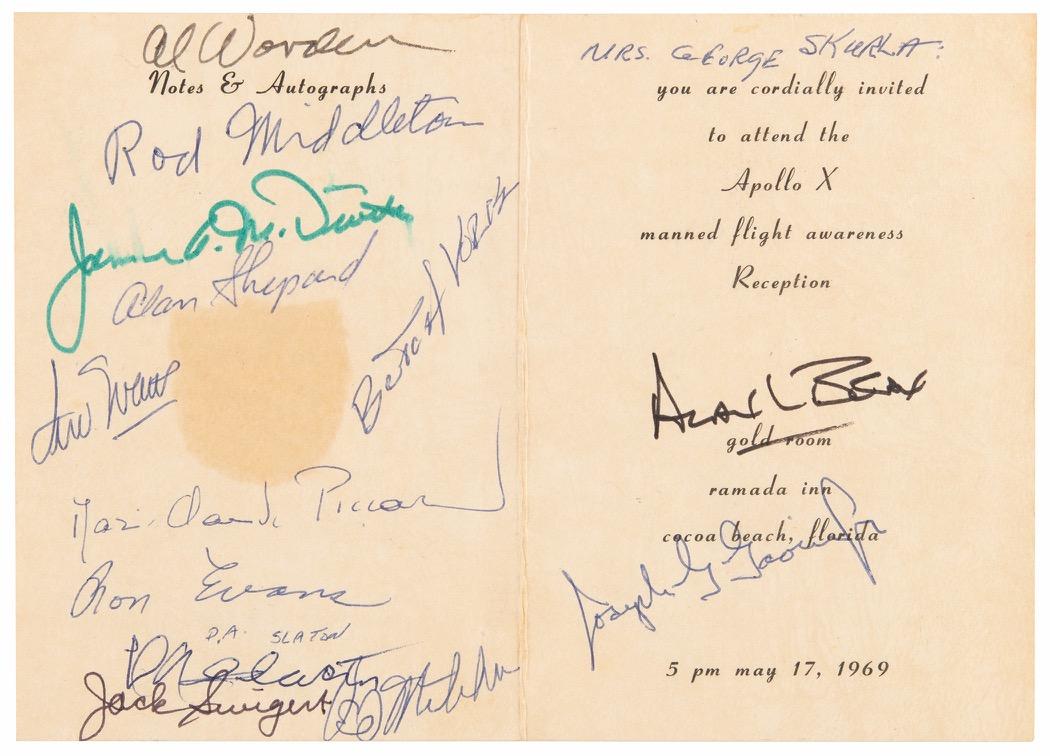 Al Worden
Notes & Autographs
Rod Middleton
James A. McDivitt
Alan Shepard
Marie-Claude Piccard
Ron Evans
D.A. SLATON
Jack Swigert
Ed Mitchell
MRS. GEORGE SKURLA:
you are cordially invited
to attend the
Apollo X
manned flight awareness
Reception
Alan L Bean
gold room
ramada inn
cocoa beach, florida
Joseph G
5 pm may 17, 1969